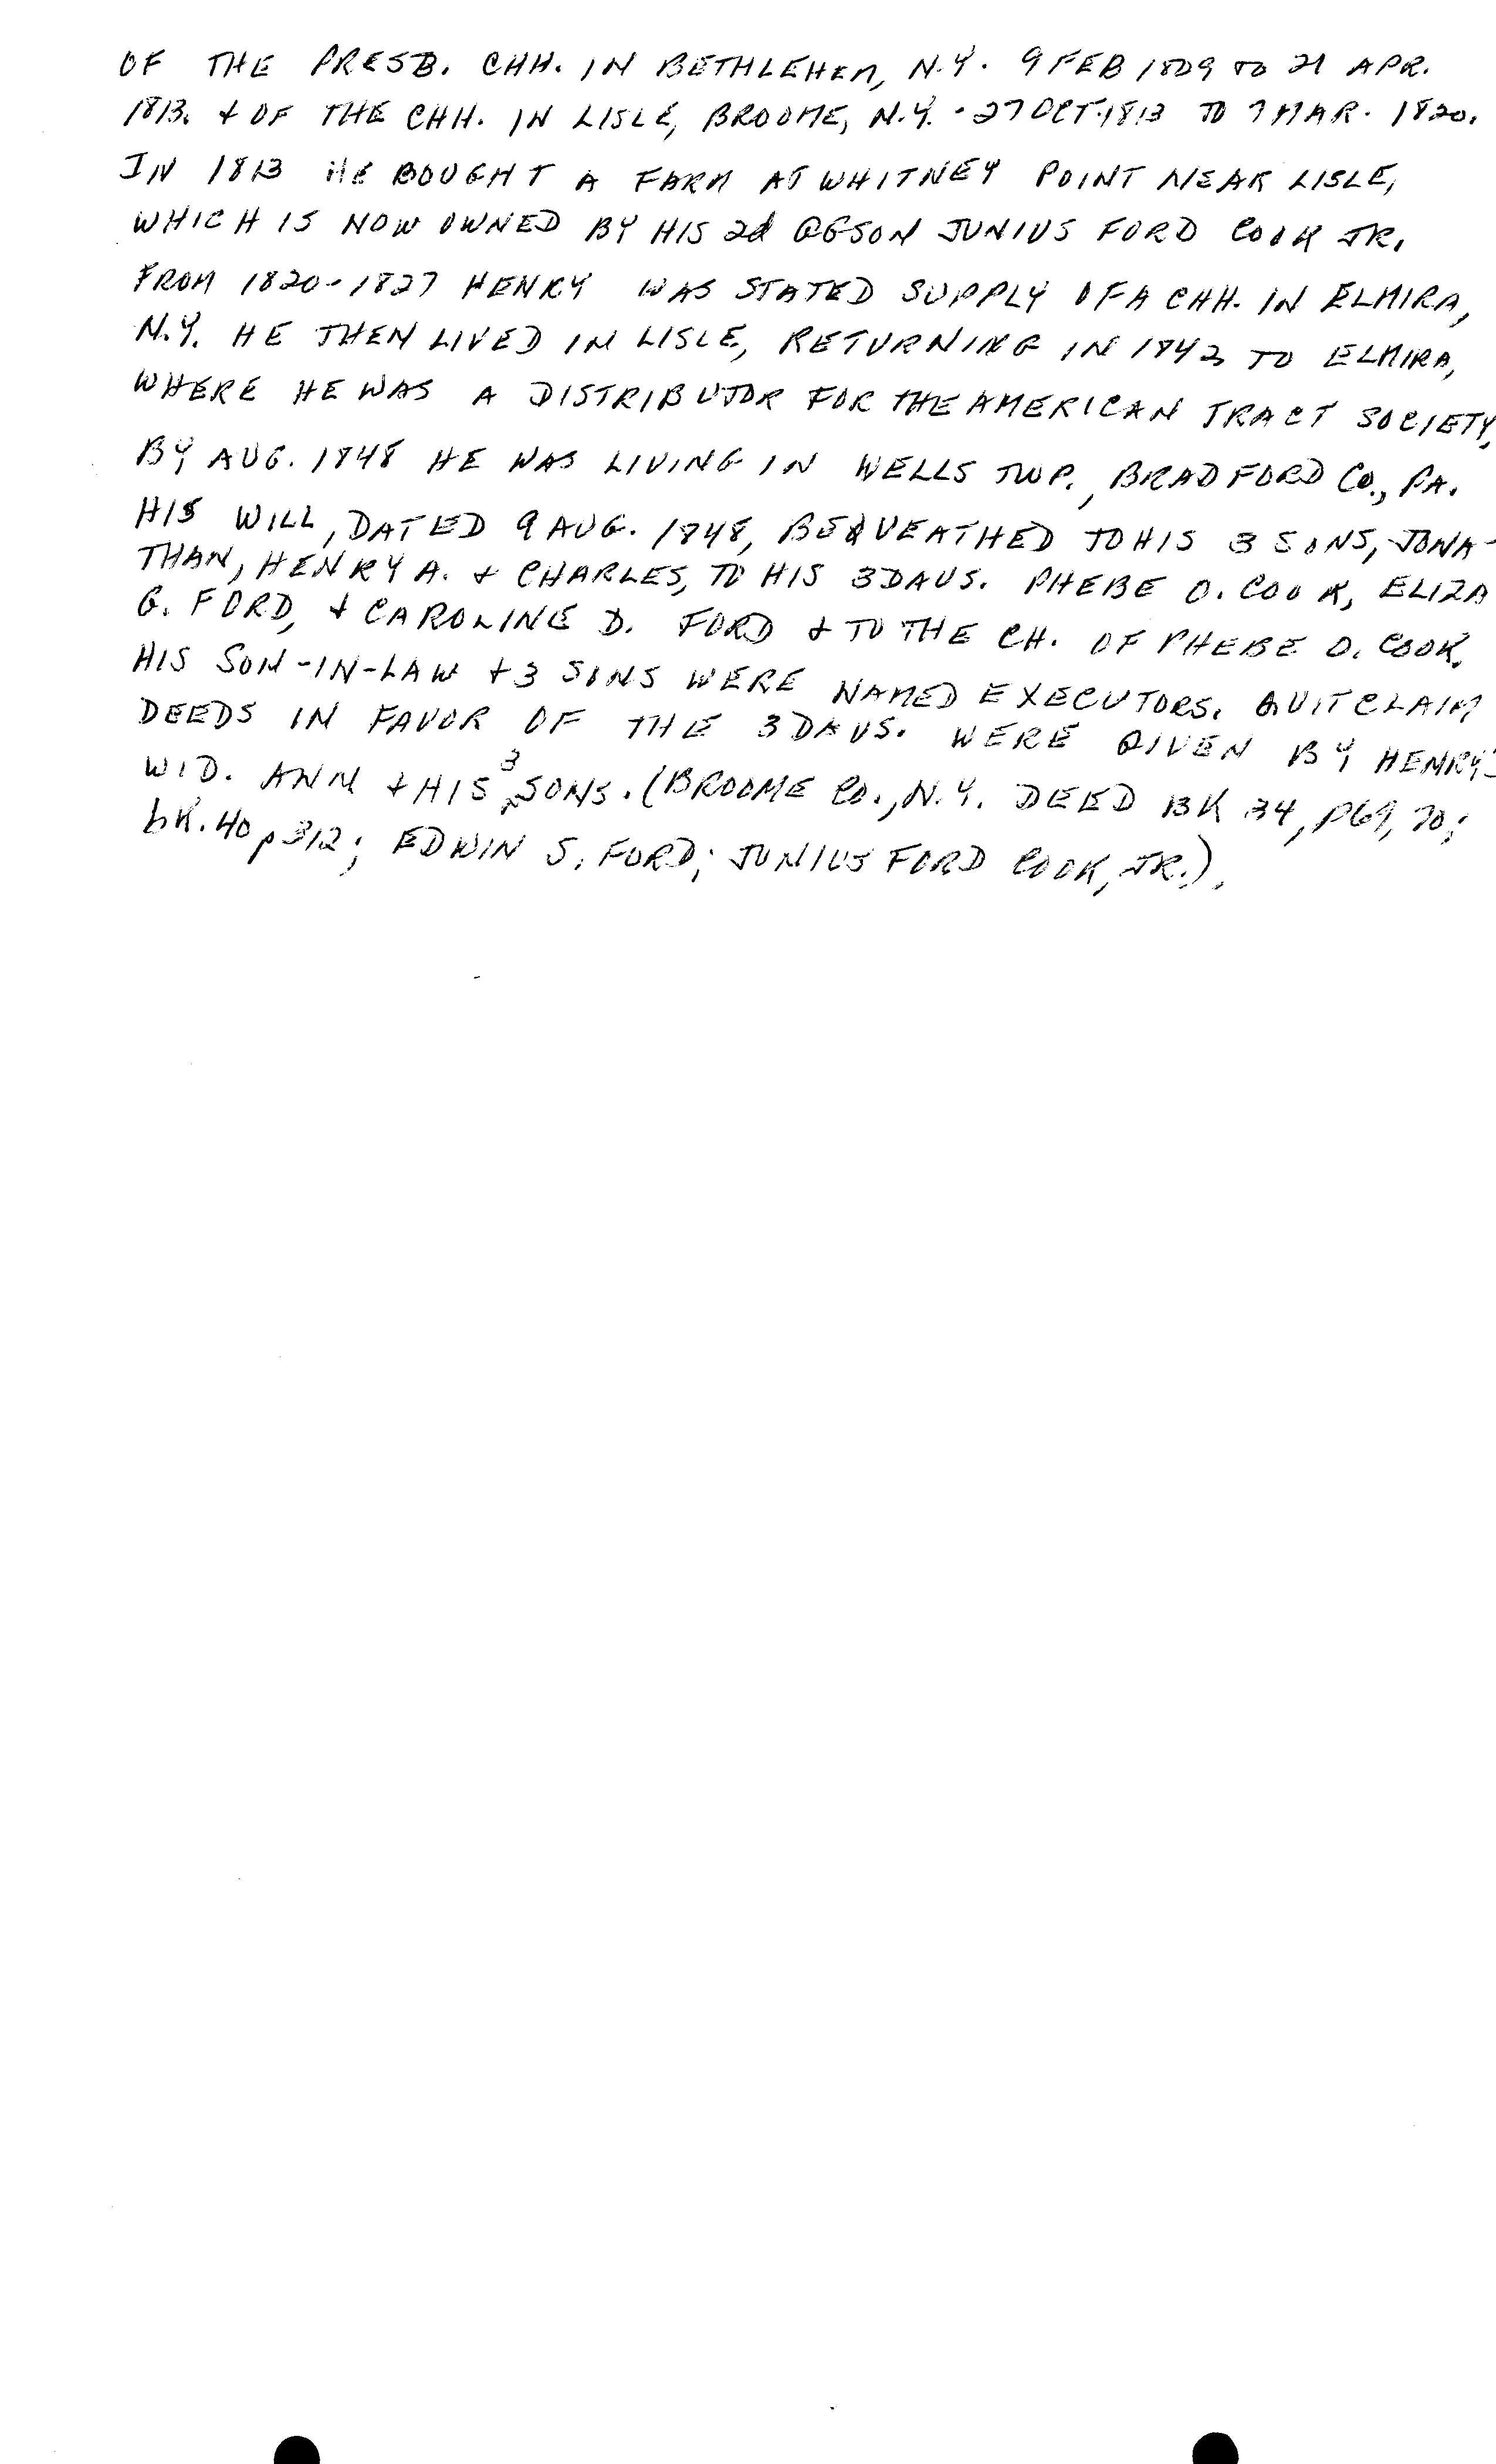 OF THE PRESB. CHH. IN BETHLEHEM, N.Y. 9 FEB 1809 TO 21 APR.
1813. + OF THE CHH. IN LISLE, BROOME, N.Y. - 27 OCT. 1813 TO 7 MAR. 1820.
IN 1813 HE BOUGHT A FARM AT WHITNEY POINT NEAR LISLE,
WHICH IS NOW OWNED BY HIS 2d GGSON JUNIUS FORD COOK JR.
FROM 1820-1827 HENRY WAS STATED SUPPLY OF A CHH. IN ELMIRA,
N.Y. HE THEN LIVED IN LISLE, RETURNING IN 1842 TO ELMIRA,
WHERE HE WAS A DISTRIBUTOR FOR THE AMERICAN TRACT SOCIETY,
BY AUG. 1848 HE WAS LIVING IN WELLS TWP., BRADFORD CO., PA.
HIS WILL, DATED 9 AUG. 1848, BEQUEATHED TO HIS 3 SONS, JONA-
THAN, HENRY A. + CHARLES, TO HIS 3 DAUS. PHEBE O. COOK, ELIZA
G. FORD, + CAROLINE D. FORD + TO THE CH. OF PHEBE O. COOK.
HIS SON-IN-LAW + 3 SONS WERE NAMED EXECUTORS. QUITCLAIM
DEEDS IN FAVOR OF THE 3 DAUS. WERE GIVEN BY HENRY'S
WID. ANN + HIS 3 SONS. (BROOME CO., N.Y. DEED BK 34, P69, 70;
bk. 40 p 312; EDWIN S. FORD; JUNIUS FORD COOK, JR.).